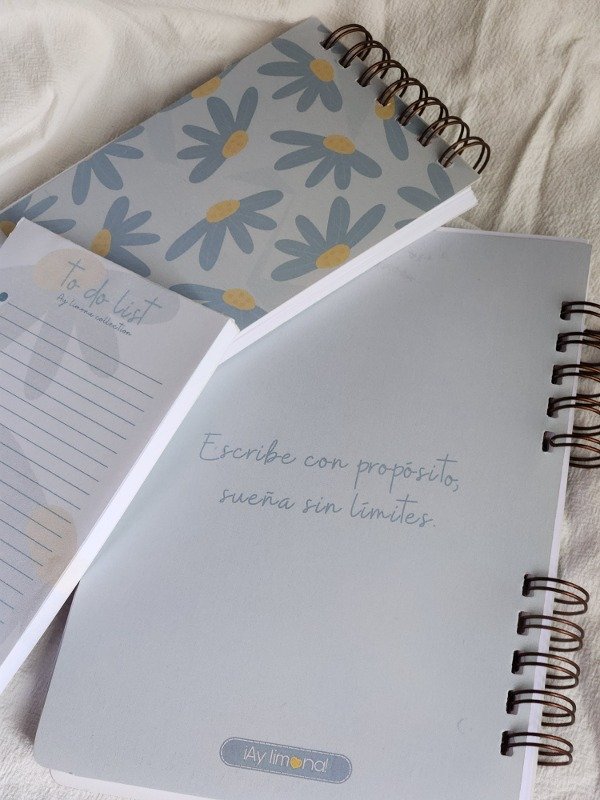 to do list
Ay limona collection
Escribe con propósito,
sueña sin límites.
¡Ay limona!